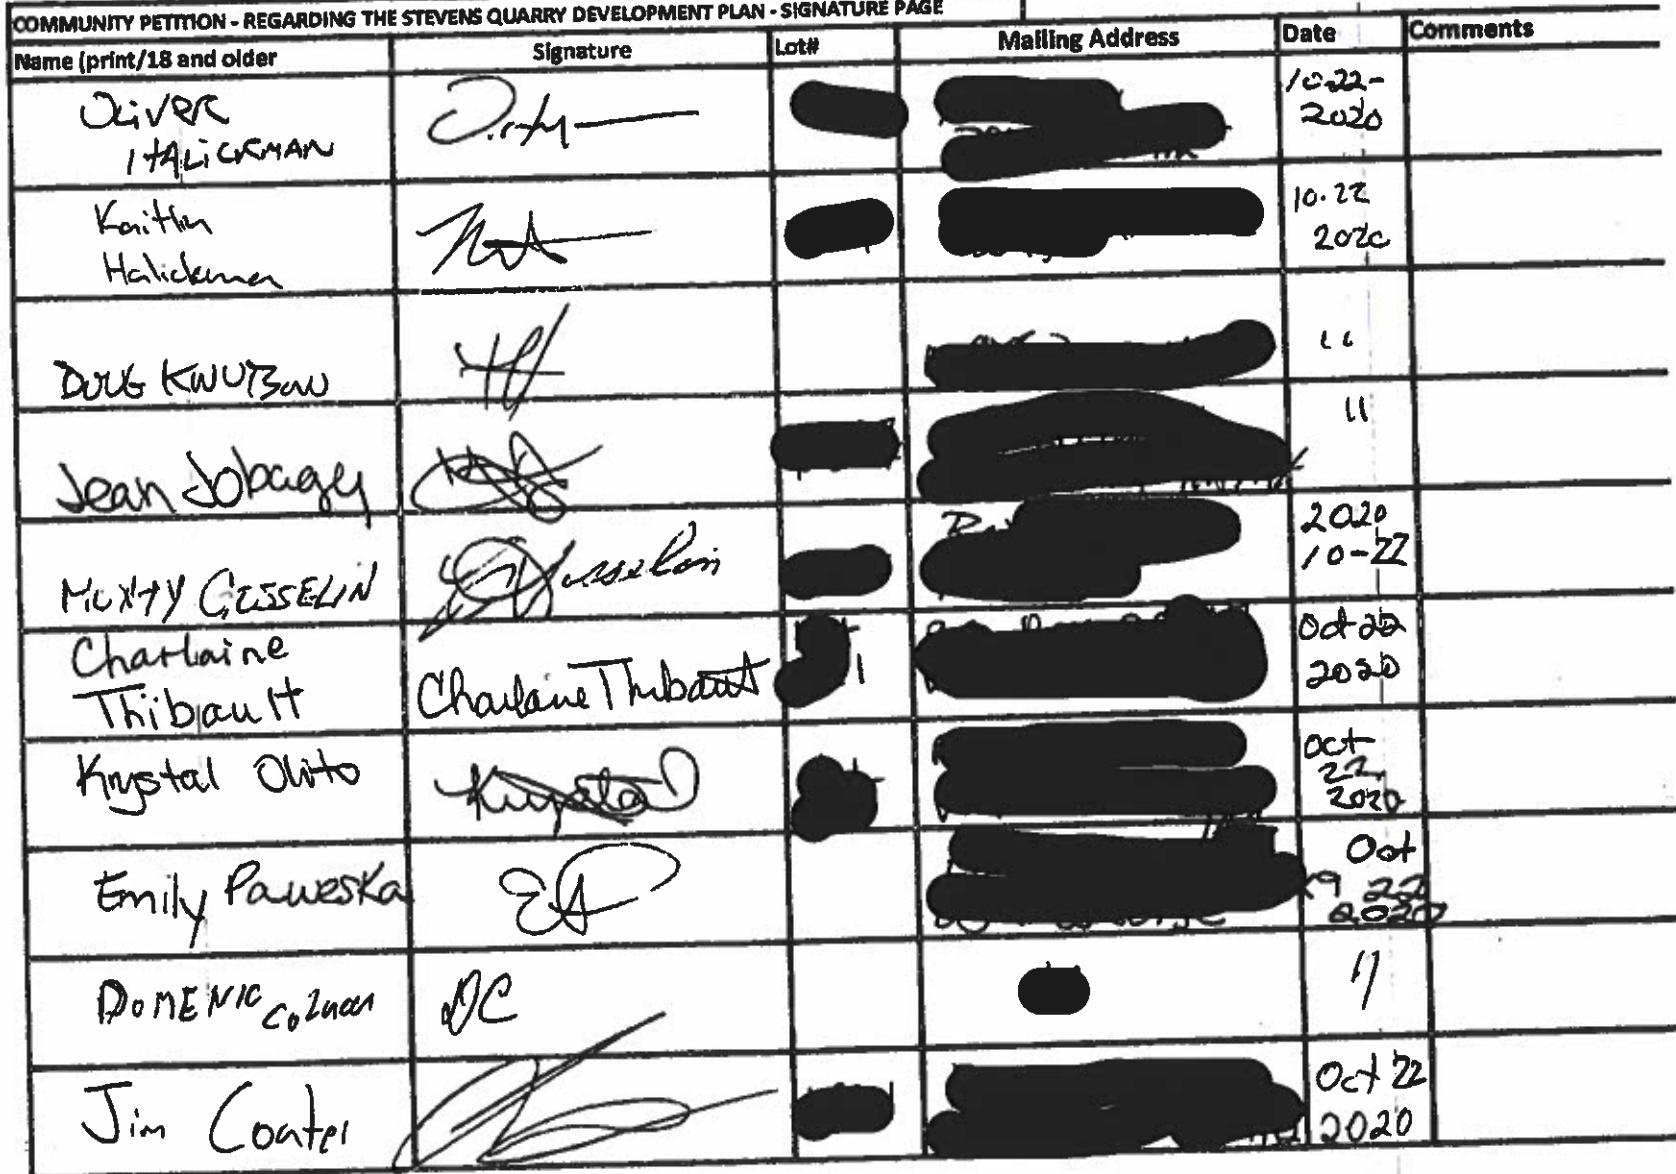 COMMUNITY PETITION - REGARDING THE STEVENS QUARRY DEVELOPMENT PLAN - SIGNATURE PAGE
Name (print/18 and older Signature Lot# Mailing Address Date Comments
OLIVER 10-22-
HALICKMAN 2020
Kaitlin 10.22
Halickman 2020
DOUG KNUTSON 11
Jean Jobagy 11
2020
GESSELIN Gesselin 10-22
Charlaine Oct 22
Thibault Charlaine Thibault 1 2020
Krystal Olito Krystal Oct
22,
2020
Emily Paweska Oct
22
2020
DOMENIC DC 11
Jim Oct 22
2020